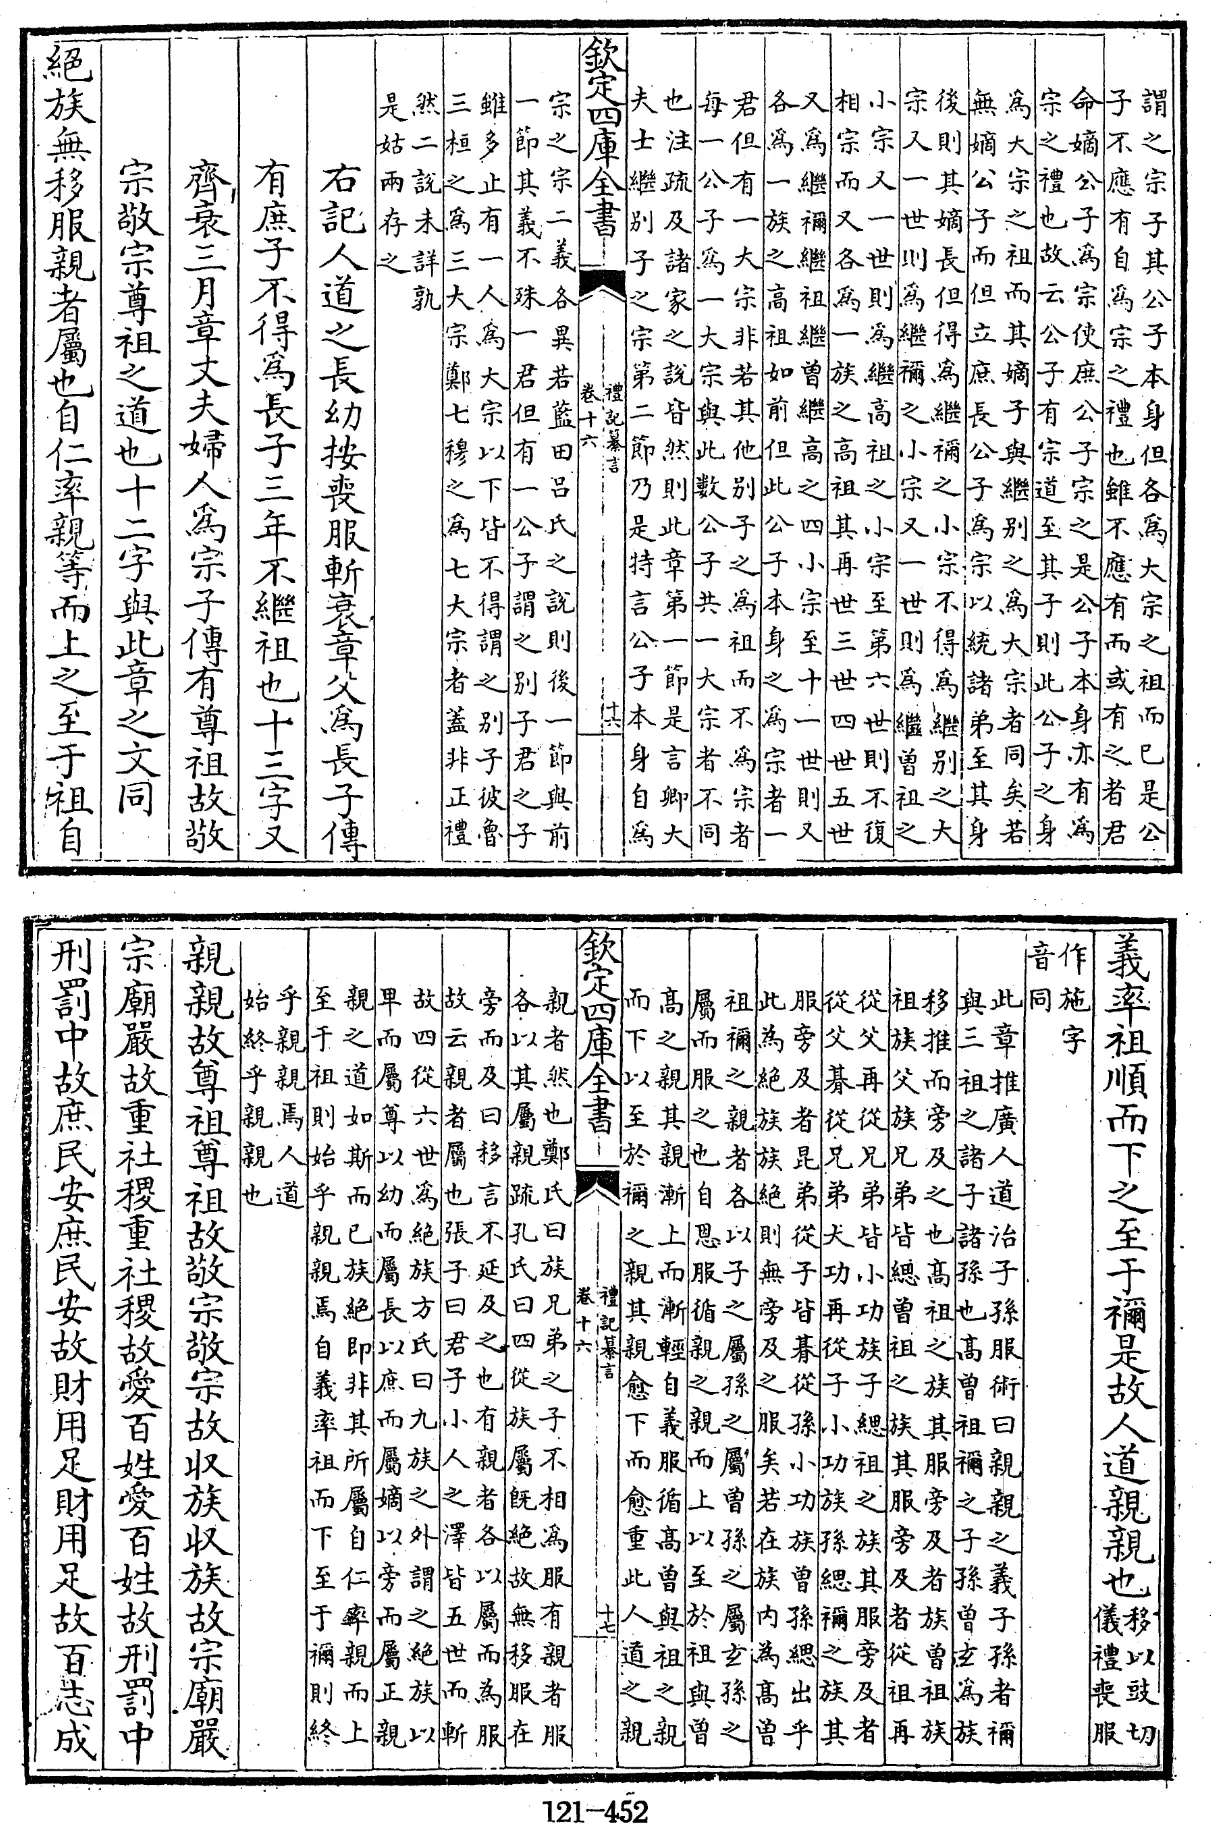 謂之宗子其公子本身但各爲大宗之祖而已是公
子不應有自爲宗之禮也雖不應有而或有之者君
命嫡公子爲宗使庶公子宗之是公子本身亦有爲
宗之禮也故云公子有宗道至其子則此公子之身
爲大宗之祖而其嫡子與繼别之爲大宗者同矣若
無嫡公子而但立庶長公子爲宗以統諸弟至其身
後則其嫡長但得爲繼禰之小宗不得爲繼别之大
宗又一世則爲繼禰之小宗又一世則爲繼曾祖之
小宗又一世則爲繼高祖之小宗至第六世則不復
相宗而又各爲一族之高祖其再世三世四世五世
又爲繼禰繼祖繼曾繼高之四小宗至十一世則又
各爲一族之高祖如前但此公子本身之爲宗者一
君但有一大宗非若其他别子之爲祖而不爲宗者
每一公子爲一大宗與此數公子共一大宗者不同
也注疏及諸家之說皆然則此章第一節是言卿大
夫士繼别子之宗第二節乃是特言公子本身自爲
欽定四庫全書
禮記纂言
卷十六
十六
宗之宗二義各異若藍田吕氏之說則後一節與前
一節其義不殊一君但有一公子謂之别子君之子
雖多止有一人爲大宗以下皆不得謂之别子彼魯
三桓之爲三大宗鄭七穆之爲七大宗者蓋非正禮
然二說未詳孰
是姑兩存之
右記人道之長幼按喪服斬衰章父爲長子傳
有庶子不得爲長子三年不繼祖也十三字又
齊衰三月章丈夫婦人爲宗子傳有尊祖故敬
宗敬宗尊祖之道也十二字與此章之文同
絕族無移服親者屬也自仁率親等而上之至于祖自
義率祖順而下之至于禰是故人道親親也
移以豉切
儀禮喪服
作施字
音同
此章推廣人道治子孫服術曰親親之義子孫者禰
與三祖之諸子諸孫也高曾祖禰之子孫曾玄爲族
移推而旁及之也高祖之族其服旁及者族曾祖族
祖族父族兄弟皆緦曾祖之族其服旁及者從祖再
從父再從兄弟皆小功族子緦祖之族其服旁及者
從父朞從兄弟大功再從子小功族孫緦禰之族其
服旁及者昆弟從子皆朞從孫小功族曾孫緦出乎
此為絕族族絕則無旁及之服矣若在族内為高曾
祖禰之親者各以子之屬孫之屬曾孫之屬玄孫之
屬而服之也自恩服循親之親而上以至於祖與曾
高之親其親漸上而漸輕自義服循高曾與祖之親
而下以至於禰之親其親愈下而愈重此人道之親
欽定四庫全書
禮記纂言
卷十六
十七
親者然也鄭氏曰族兄弟之子不相為服有親者服
各以其屬親疏孔氏曰四從族屬既絕故無移服在
旁而及曰移言不延及之也有親者各以屬而為服
故云親者屬也張子曰君子小人之澤皆五世而斬
故四從六世爲絕族方氏曰九族之外謂之絕族以
卑而屬尊以幼而屬長以庶而屬嫡以旁而屬正親
親之道如斯而已族絕即非其所屬自仁率親而上
至于祖則始乎親親焉自義率祖而下至于禰則終
乎親親焉人道
始終乎親親也
親親故尊祖尊祖故敬宗敬宗故収族収族故宗廟嚴
宗廟嚴故重社稷重社稷故愛百姓愛百姓故刑罰中
刑罰中故庶民安庶民安故財用足財用足故百志成
121-452